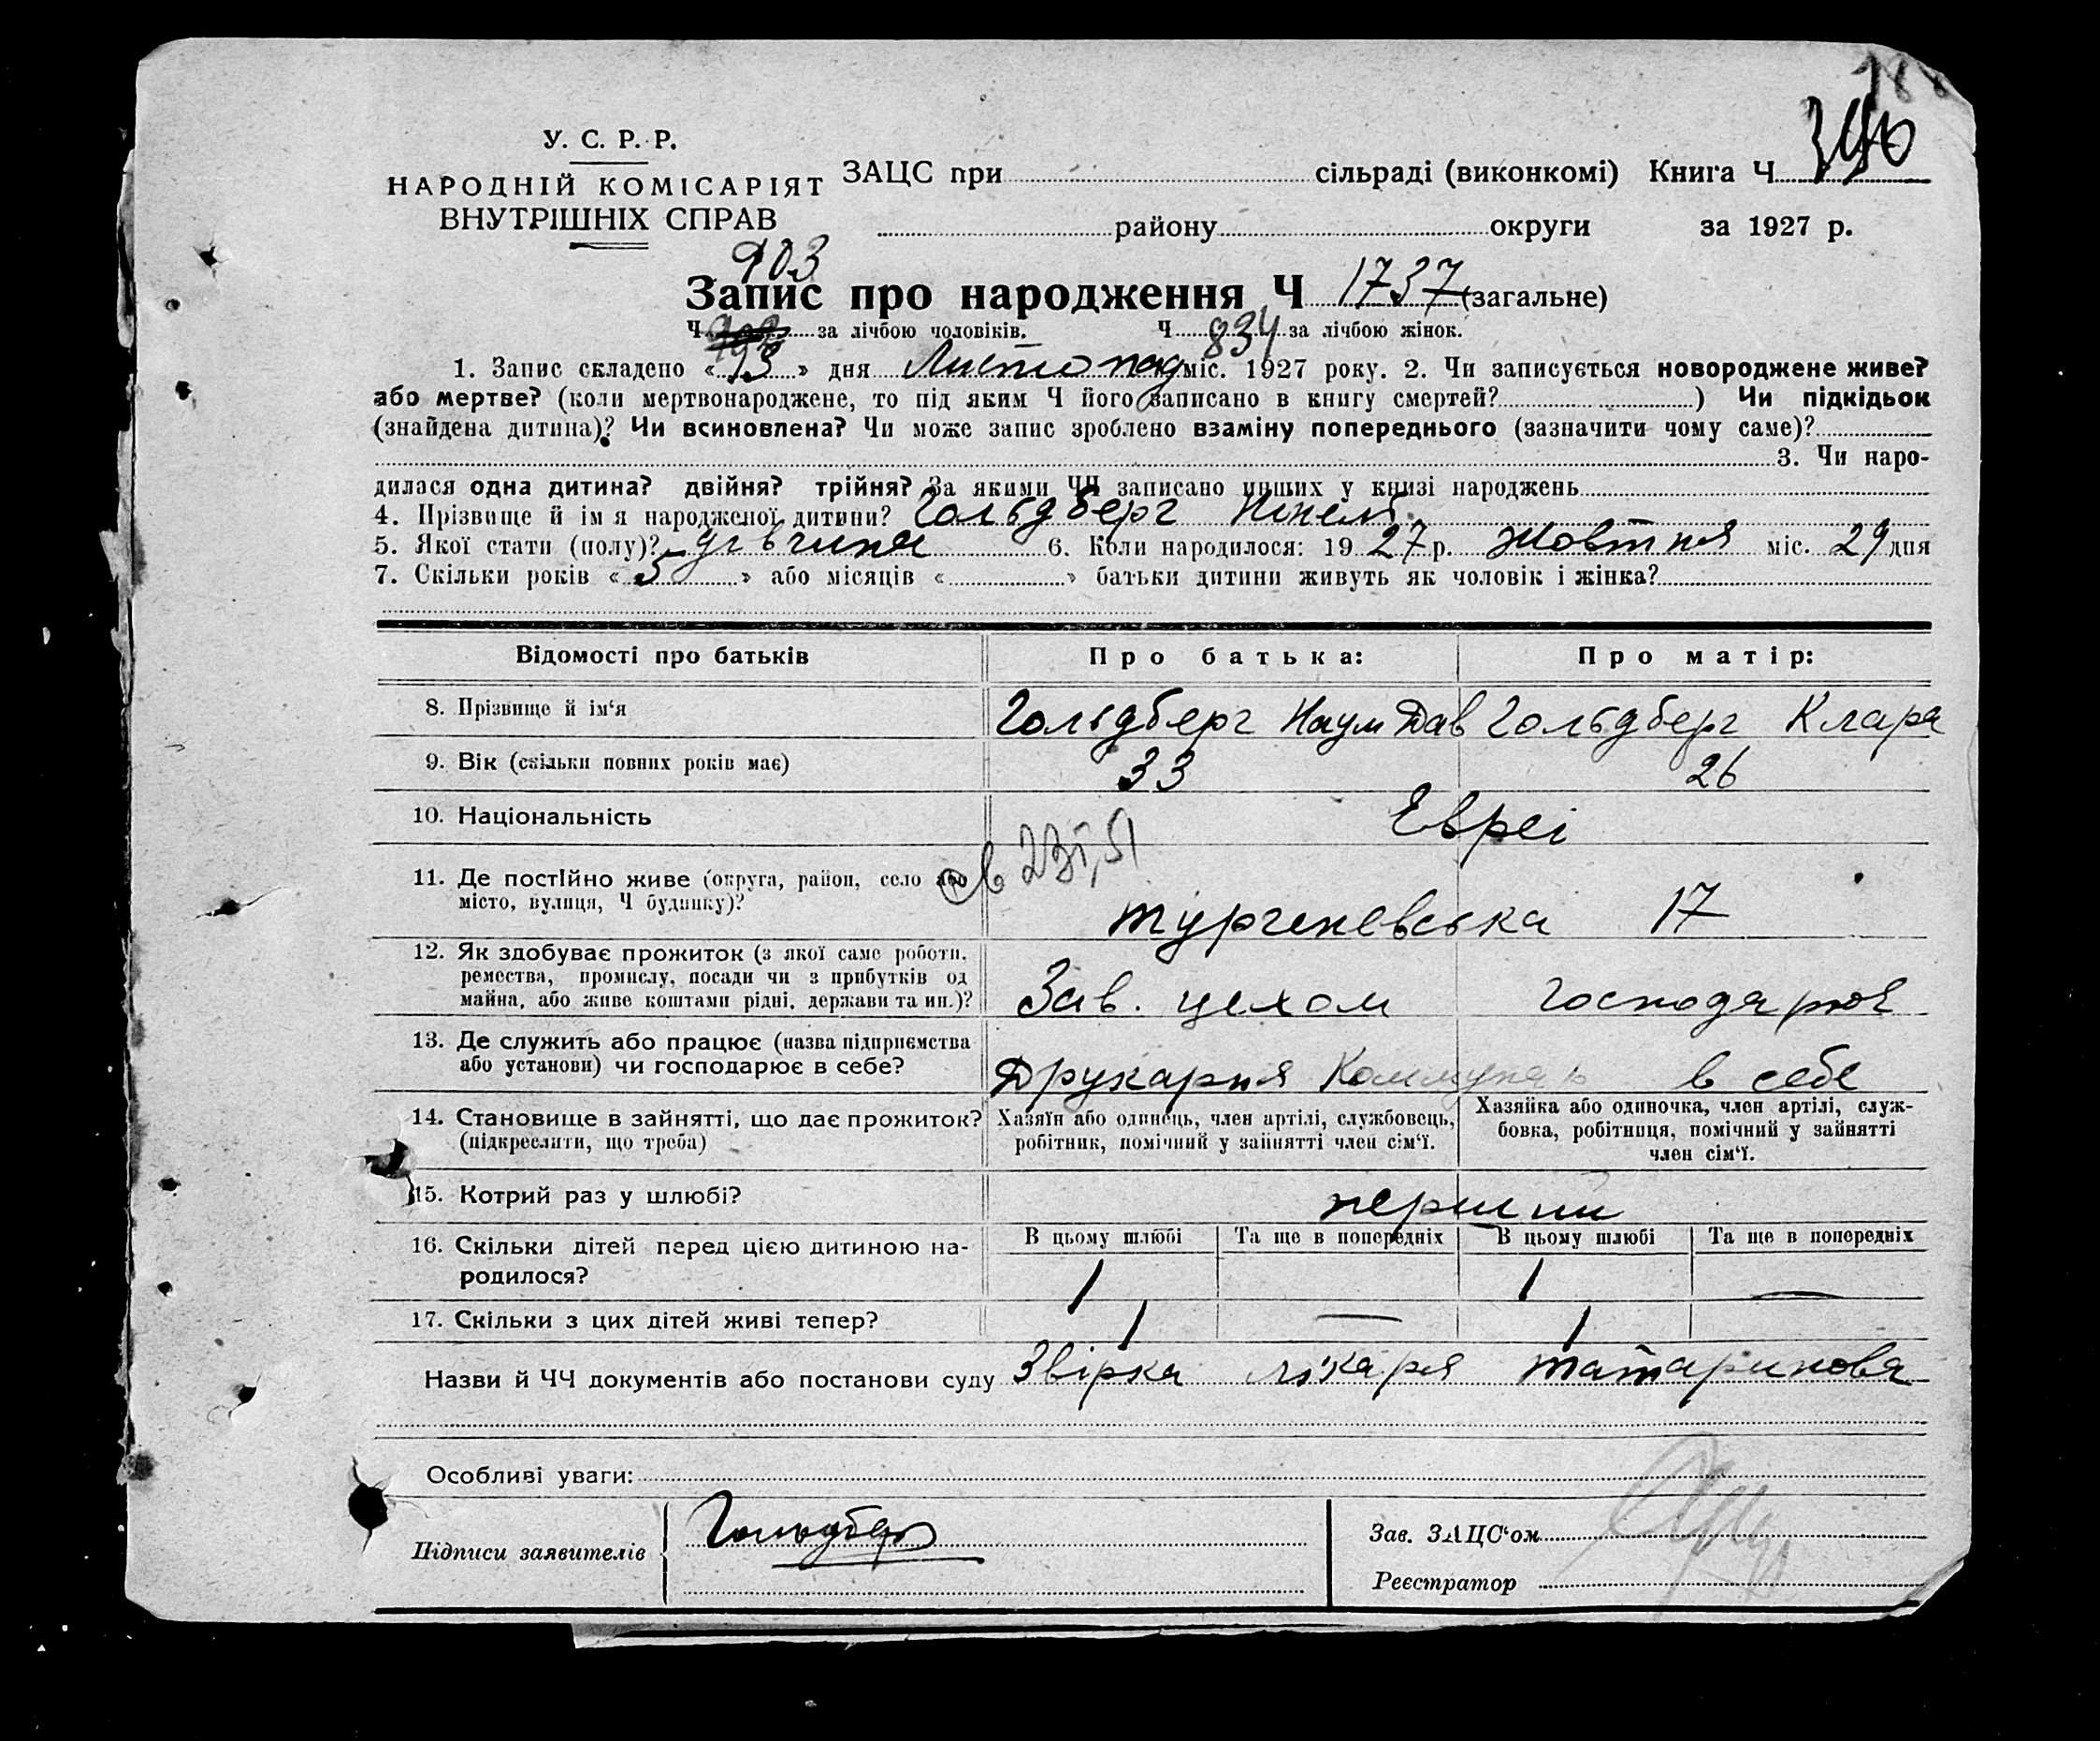 У. С. Р. Р.
НАРОДНІЙ КОМІСАРІЯТ
ВНУТРІШНІХ СПРАВ
ЗАЦС при сільраді (виконкомі) Книга Ч
району округи за 1927 р.
903
Запис про народження Ч 1737 (загальне)
Ч за лічбою чоловіків. Ч 834 за лічбою жінок.
1. Запис складено « » дня Листопад міс. 1927 року. 2. Чи записується новороджене живе?
або мертве? (коли мертвонароджене, то під яким Ч його записано в книгу смертей? ) Чи підкідьок
(знайдена дитина)? Чи всиновлена? Чи може запис зроблено взаміну попереднього (зазначити чому саме)?
3. Чи наро-
дилася одна дитина? двійня? трійня? За якими ЧЧ записано инших у книзі народжень
4. Прізвище й ім я народженої дитини? Гольдберг Нінель
5. Якої стати (полу)? дівчина 6. Коли народилося: 1927 р. Жовтня міс. 29 дня
7. Скільки років « 5 » або місяців « » батьки дитини живуть як чоловік і жінка?
Відомості про батьків Про батька: Про матір:
8. Прізвище й ім‘я Гольдберг Наум Дав Гольдберг Клара
9. Вік (скільки повних років має) 33 26
10. Національність Евреі
11. Де постійно живе (округа, район, село або
місто, вулиця, Ч будинку)? Тургеневська 17
12. Як здобуває прожиток (з якої саме роботи,
ремества, промислу, посади чи з прибутків од
майна, або живе коштами рідні, держави та ин.)? Зав. цехом господарює
13. Де служить або працює (назва підприємства
або установи) чи господарює в себе? Друкарня в себе
14. Становище в зайнятті, що дає прожиток?
(підкреслити, що треба)
Хазяїн або одинець, член артілі, службовець,
робітник, помічний у зайнятті член сім‘ї.
Хазяйка або одиночка, член артілі, служ-
бовка, робітниця, помічний у зайнятті
член сім‘ї.
15. Котрий раз у шлюбі? перший
16. Скільки дітей перед цією дитиною на-
родилося?
В цьому шлюбі Та ще в попередніх В цьому шлюбі Та ще в попередніх
1 1 —
17. Скільки з цих дітей живі тепер? 1 — 1
Назви й ЧЧ документів або постанови суду Звірка лікаря Татаринова
Особливі уваги:
Підписи заявителів Гольдберг
Зав. ЗАЦС‘ом
Реєстратор